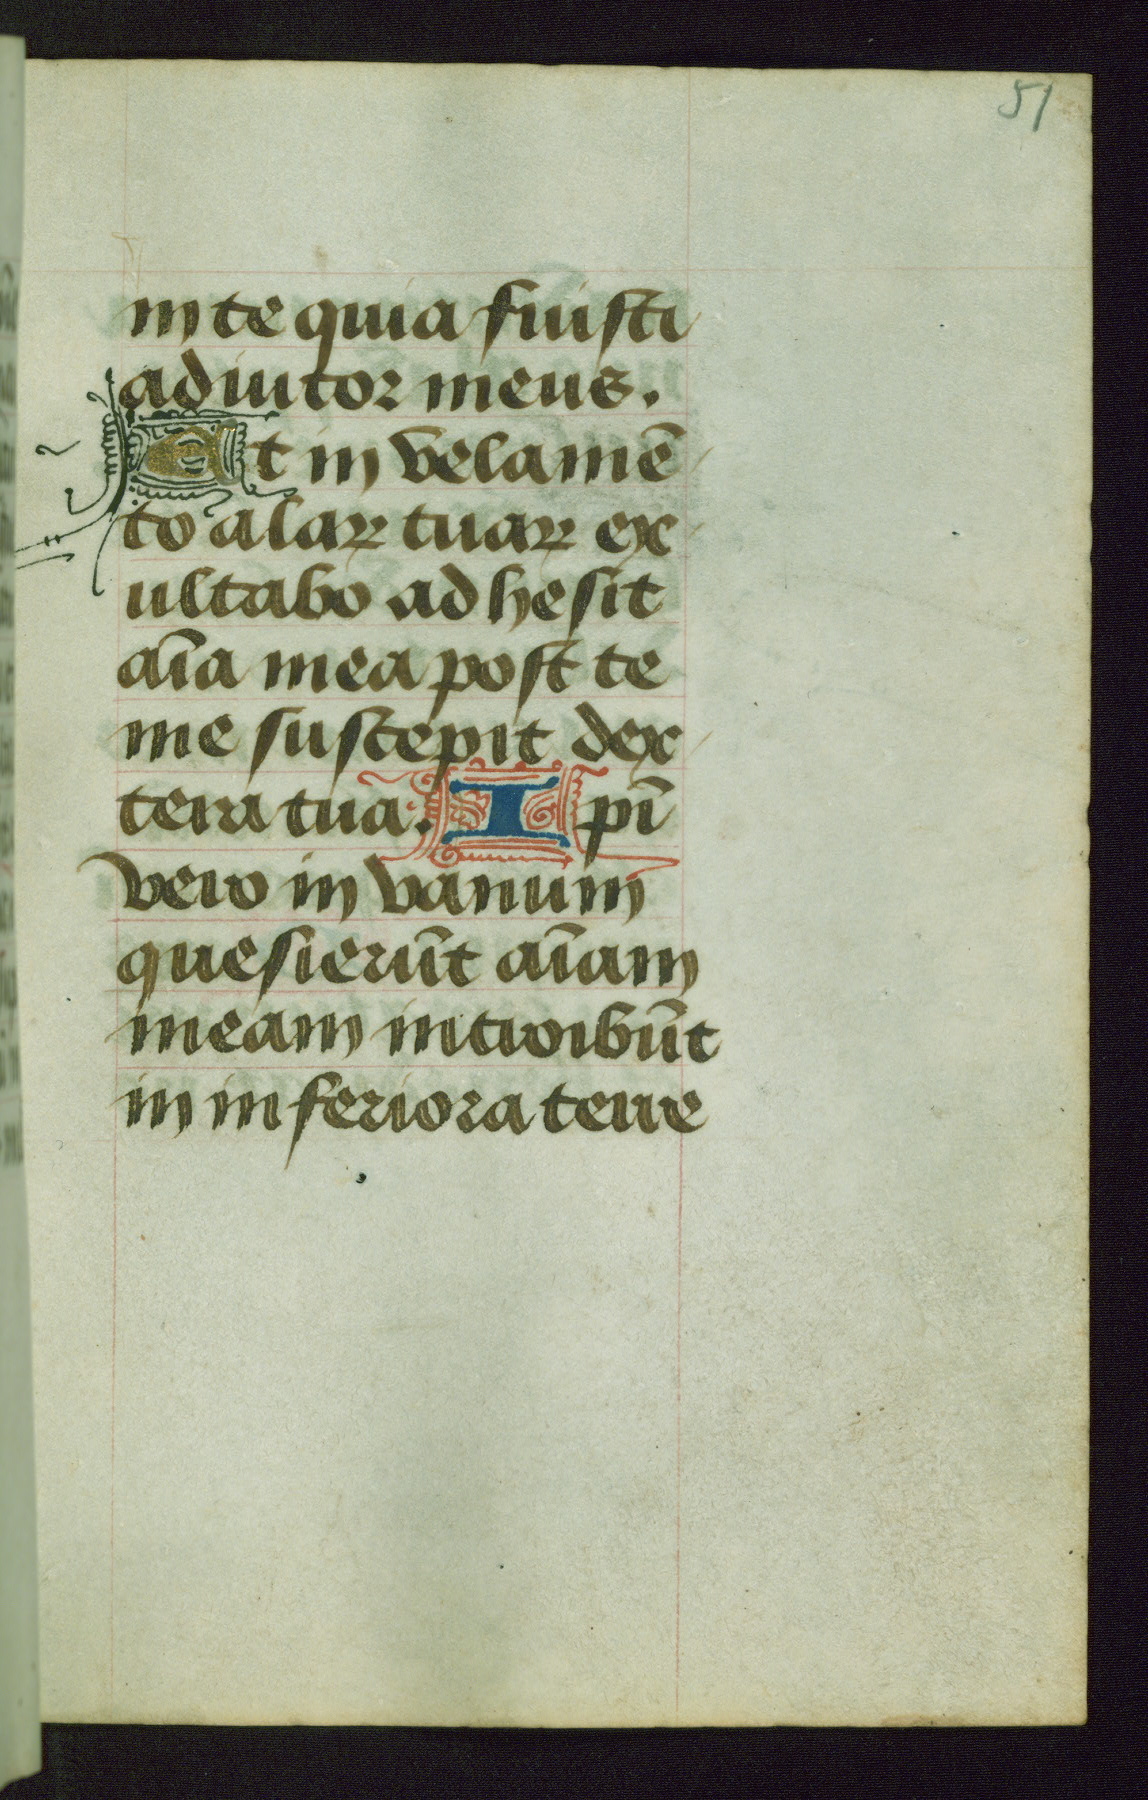 51
in te quia fuisti
adiutor meus.
Et in velamē
to alaꝝ tuaꝝ ex
ultabo adhesit
aīa mea post te
me suscepit dex
tera tua. Ipī
vero in vanum
quesierūt aīam
meam introibūt
in inferiora terre